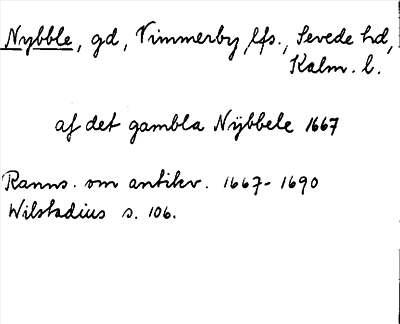 Nybble, gd, Vimmerby lfs., Sevede hd,
Kalm. l.
af det gambla Nÿbbele 1667
Ranns. om antikv. 1667-1690
Wilstadius s. 106.